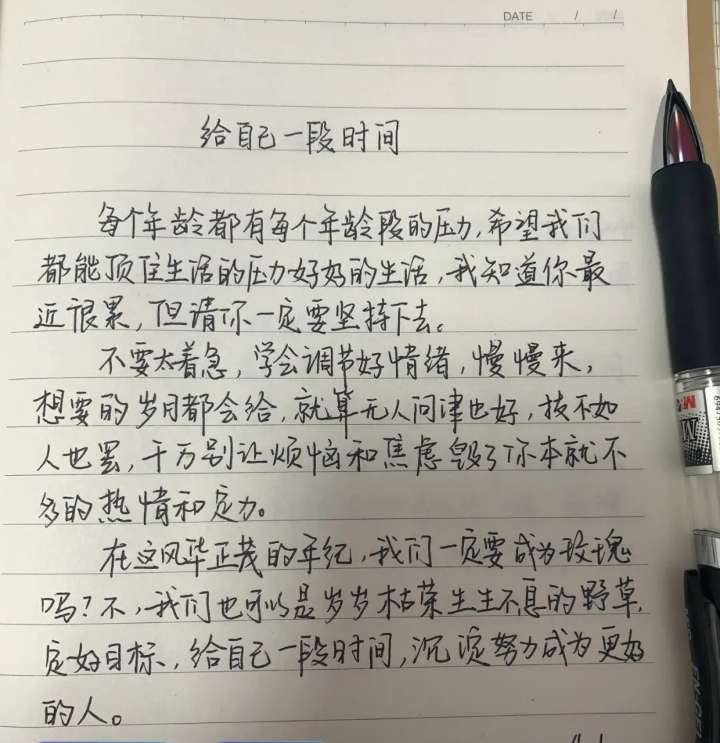 DATE / /
给自己一段时间
每个年龄都有每个年龄段的压力,希望我们
都能顶住生活的压力好好的生活,我知道你最
近很累,但请你一定要坚持下去。
不要太着急,学会调节好情绪,慢慢来,
想要的岁月都会给,就算无人问津也好,技不如
人也罢,千万别让烦恼和焦虑毁了你本就不
多的热情和定力。
在这风华正茂的年纪,我们一定要成为玫瑰
吗?不,我们也可以是岁岁枯荣生生不息的野草,
定好目标,给自己一段时间,沉淀努力成为更好
的人。